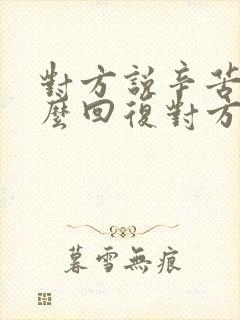 對方說辛苦
麼回復對方
暮雪無痕